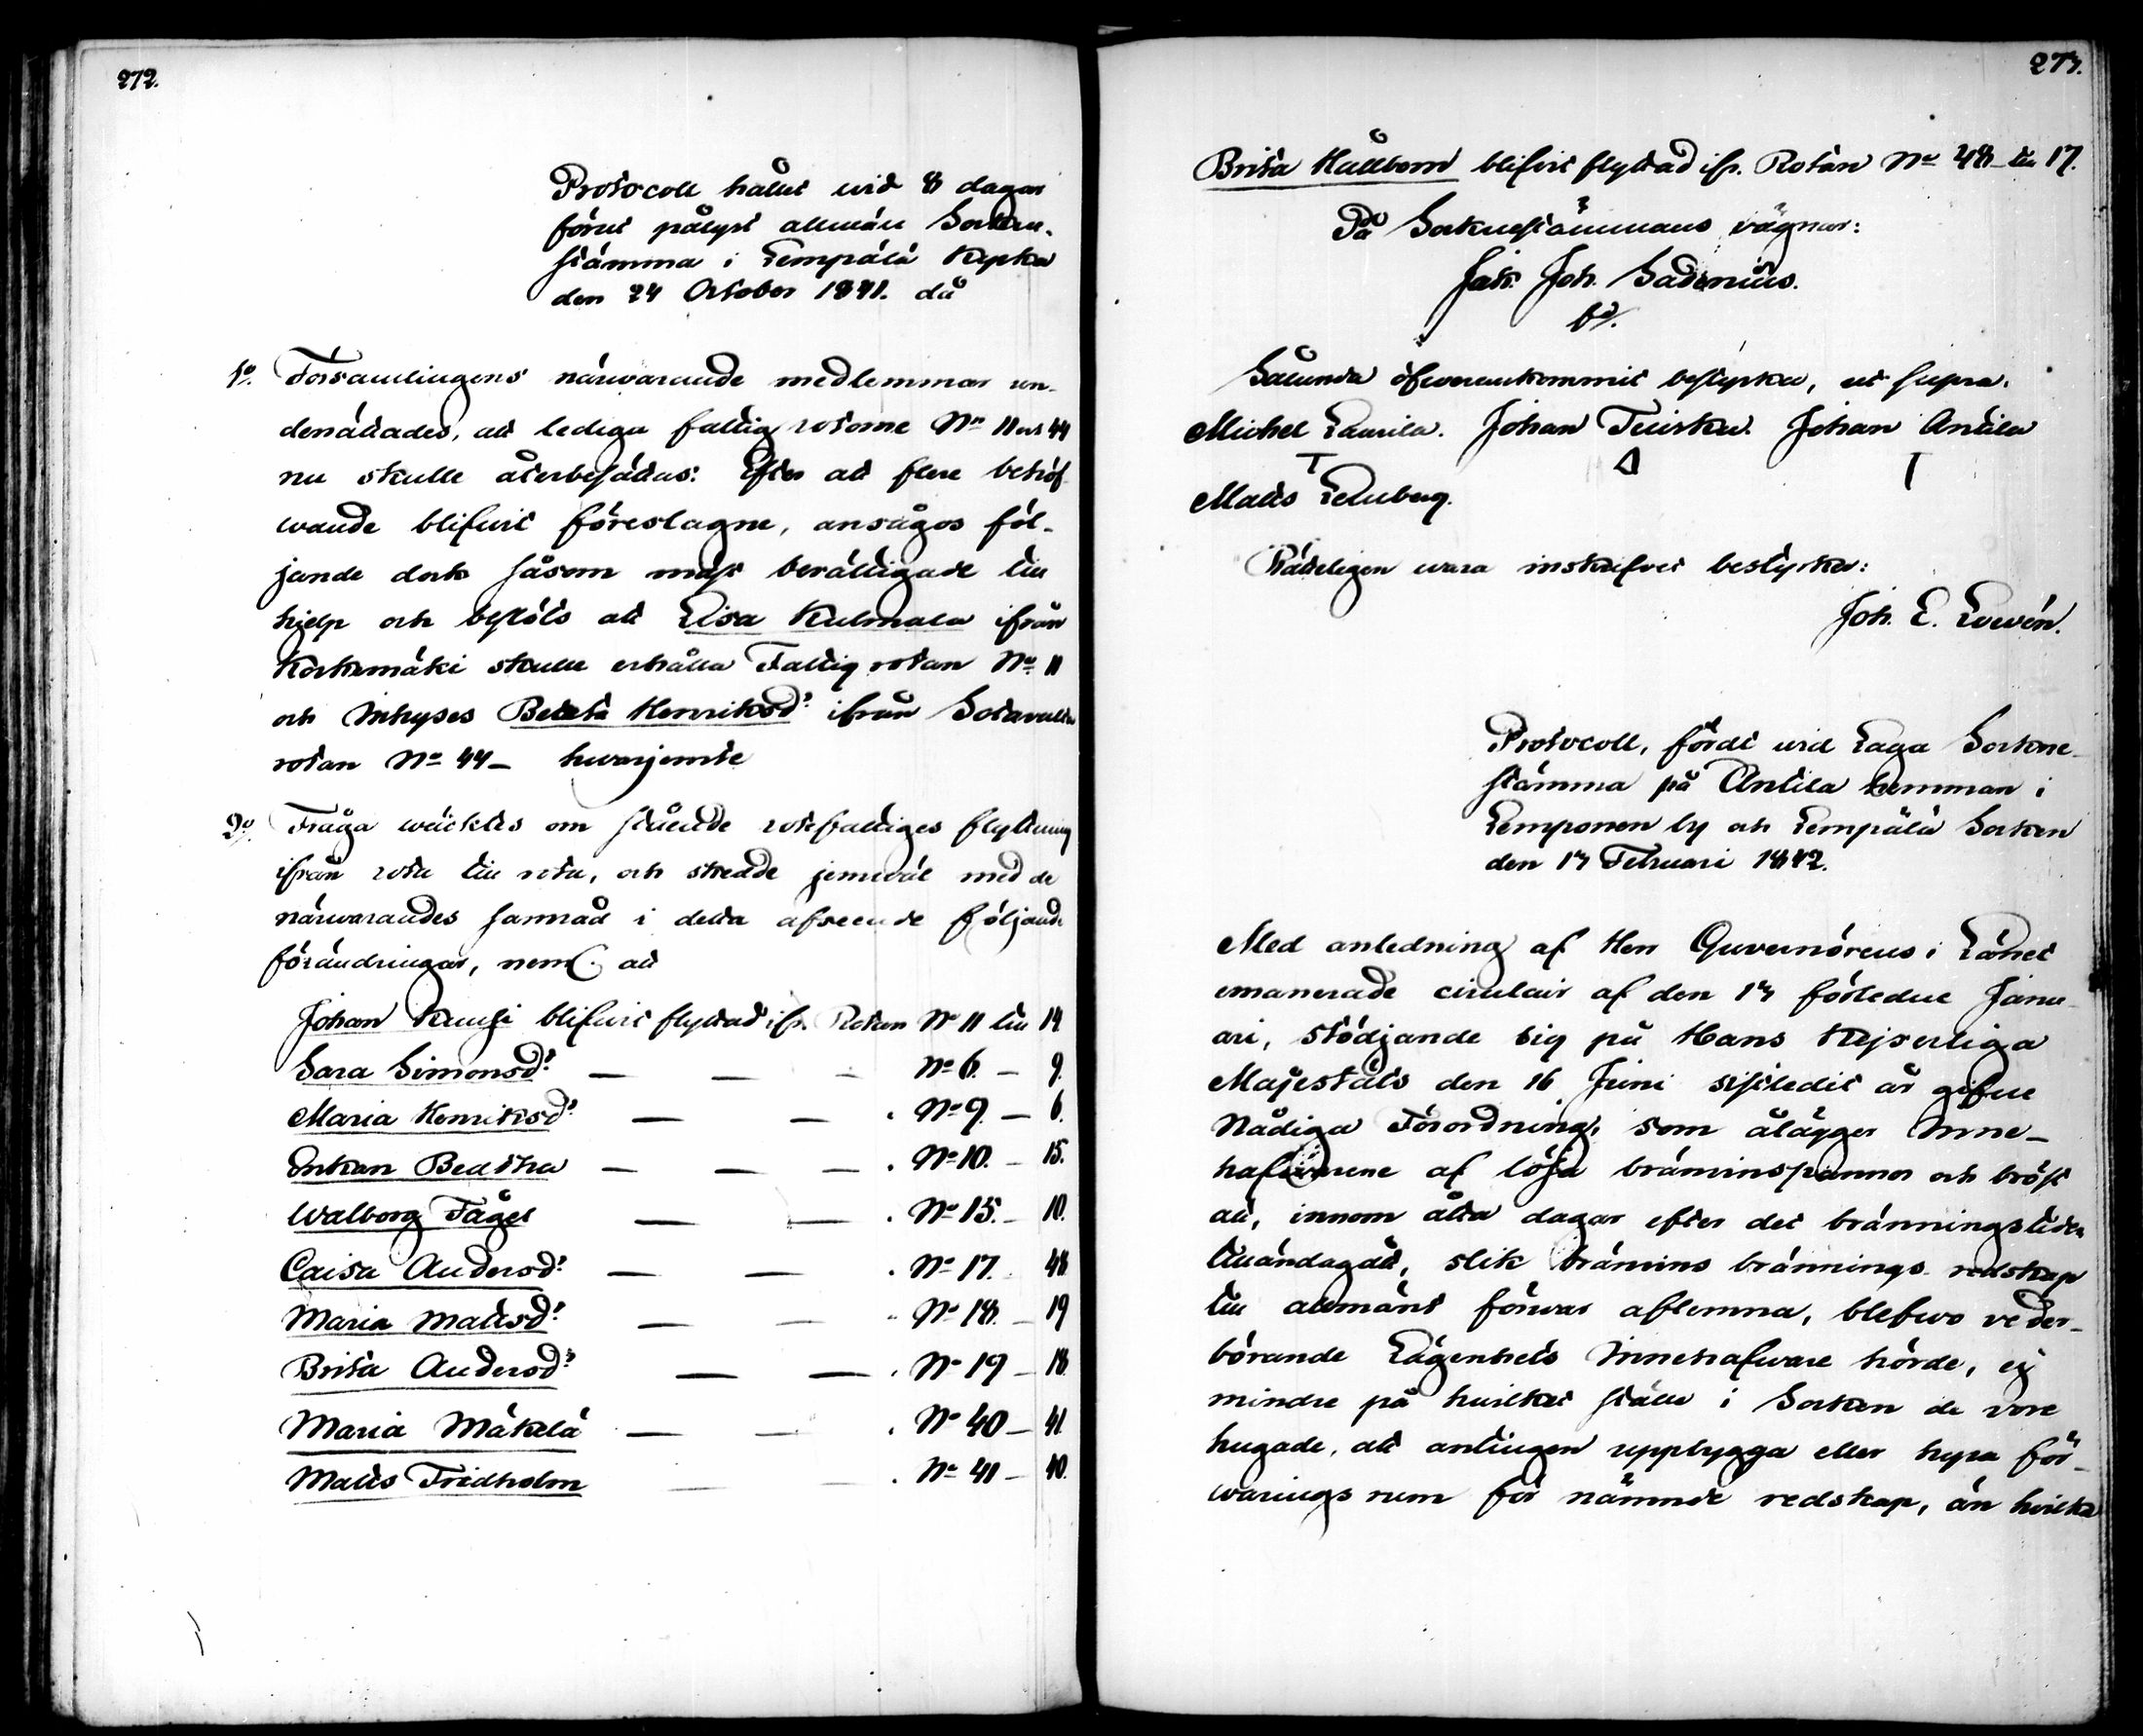 272.
Protocoll hållet wid 8 dagar
förut pålyst allmän Socken-
stämma i Lempälä Kyrka
den 24 October 1841. då
1o/. Församlingens närwarande medlemmar un-
derrättades, att lediga fattig rotorne No 11 och 44
nu skulle återbesättas: Efter att flere behöf-
wande blifwit föreslagne, ansågos föl-
jande dock såsom mäst berättigade till
hjelp och beslöts att Lisa Kulmala ifrån
Korkemäki skulle erhålla Fattig rotan No 11
och Inhyses Beata Henriksdr ifrån Sotavalta
rotan No 44 – hwarjemte
2o/. Fråga wäcktes om stående rotefattiges flyttning
ifrån rota till rota, och skedde jemwäl med de
närwarandes samråd i detta afseende följande
förändringar, neml. att
Johan Kuusi blifwit flyttad ifr. Rotan No 11 till 14
Sara Simonsdr — — — No 6. — 9.
Maria Henriksdr — — . No 9. — 6.
Enkan Beatha — — — . No 10. — 15.
Walborg Fågel — — . No 15. — 10.
Caisa Andersdr — — . No 17. 48
Maria Mattsdr — — No 18. — 19
Brita Andersdr — — . No 19 — 18.
Maria Mäkelä — — . No 40 — 41
Matts Fridholm — — . No 41 — 40.
273.
Brita Hållbom blifwit flyttad ifr. Rotan No 48 – till 17.
På Sockenstämmans vägnar:
Jak. Joh. Sadenius.
Sålunda öfwerenkommit bestyrka, ut supra.
Michel Laurila. Johan Tuisku. Johan Antila
Matts Lemberg.
Rätteligen wara inskrifwet bestyrker:
Joh. E. Lovén.
Protocoll, fördt wid Laga Sockne-
stämma på Antila hemman i
Lemponen by och Lempälä Socken
den 13 Februari 1842.
Med anledning af Herr Guvernörens i Länet
emanerade circulair af den 13 förledne Janu-
ari, stödjande sig på Hans Kejserliga
Majestäts den 16 Juni sistledit år gifne
Nådiga Förordning, som ålägger Inne-
hafwarene af lösa bränwinspannor och bröst
att, innom åtta dagar efter det bränningstiden
tilländagått, slik bränwins brännings redskap
till allmänt förwar aflemna, blefwo veder-
börande Lägenhets Innehafware hörde, ej
mindre på hwilket ställe i Socken de vore
hugade, att antingen uppbygga eller hyra för-
warings rum för nämnde redskap, än hwilka